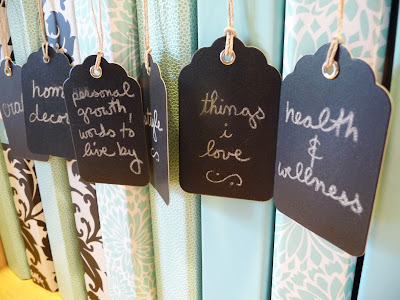 home
decor
personal
growth,
words to
live by
things
i
love
health
&
wellness